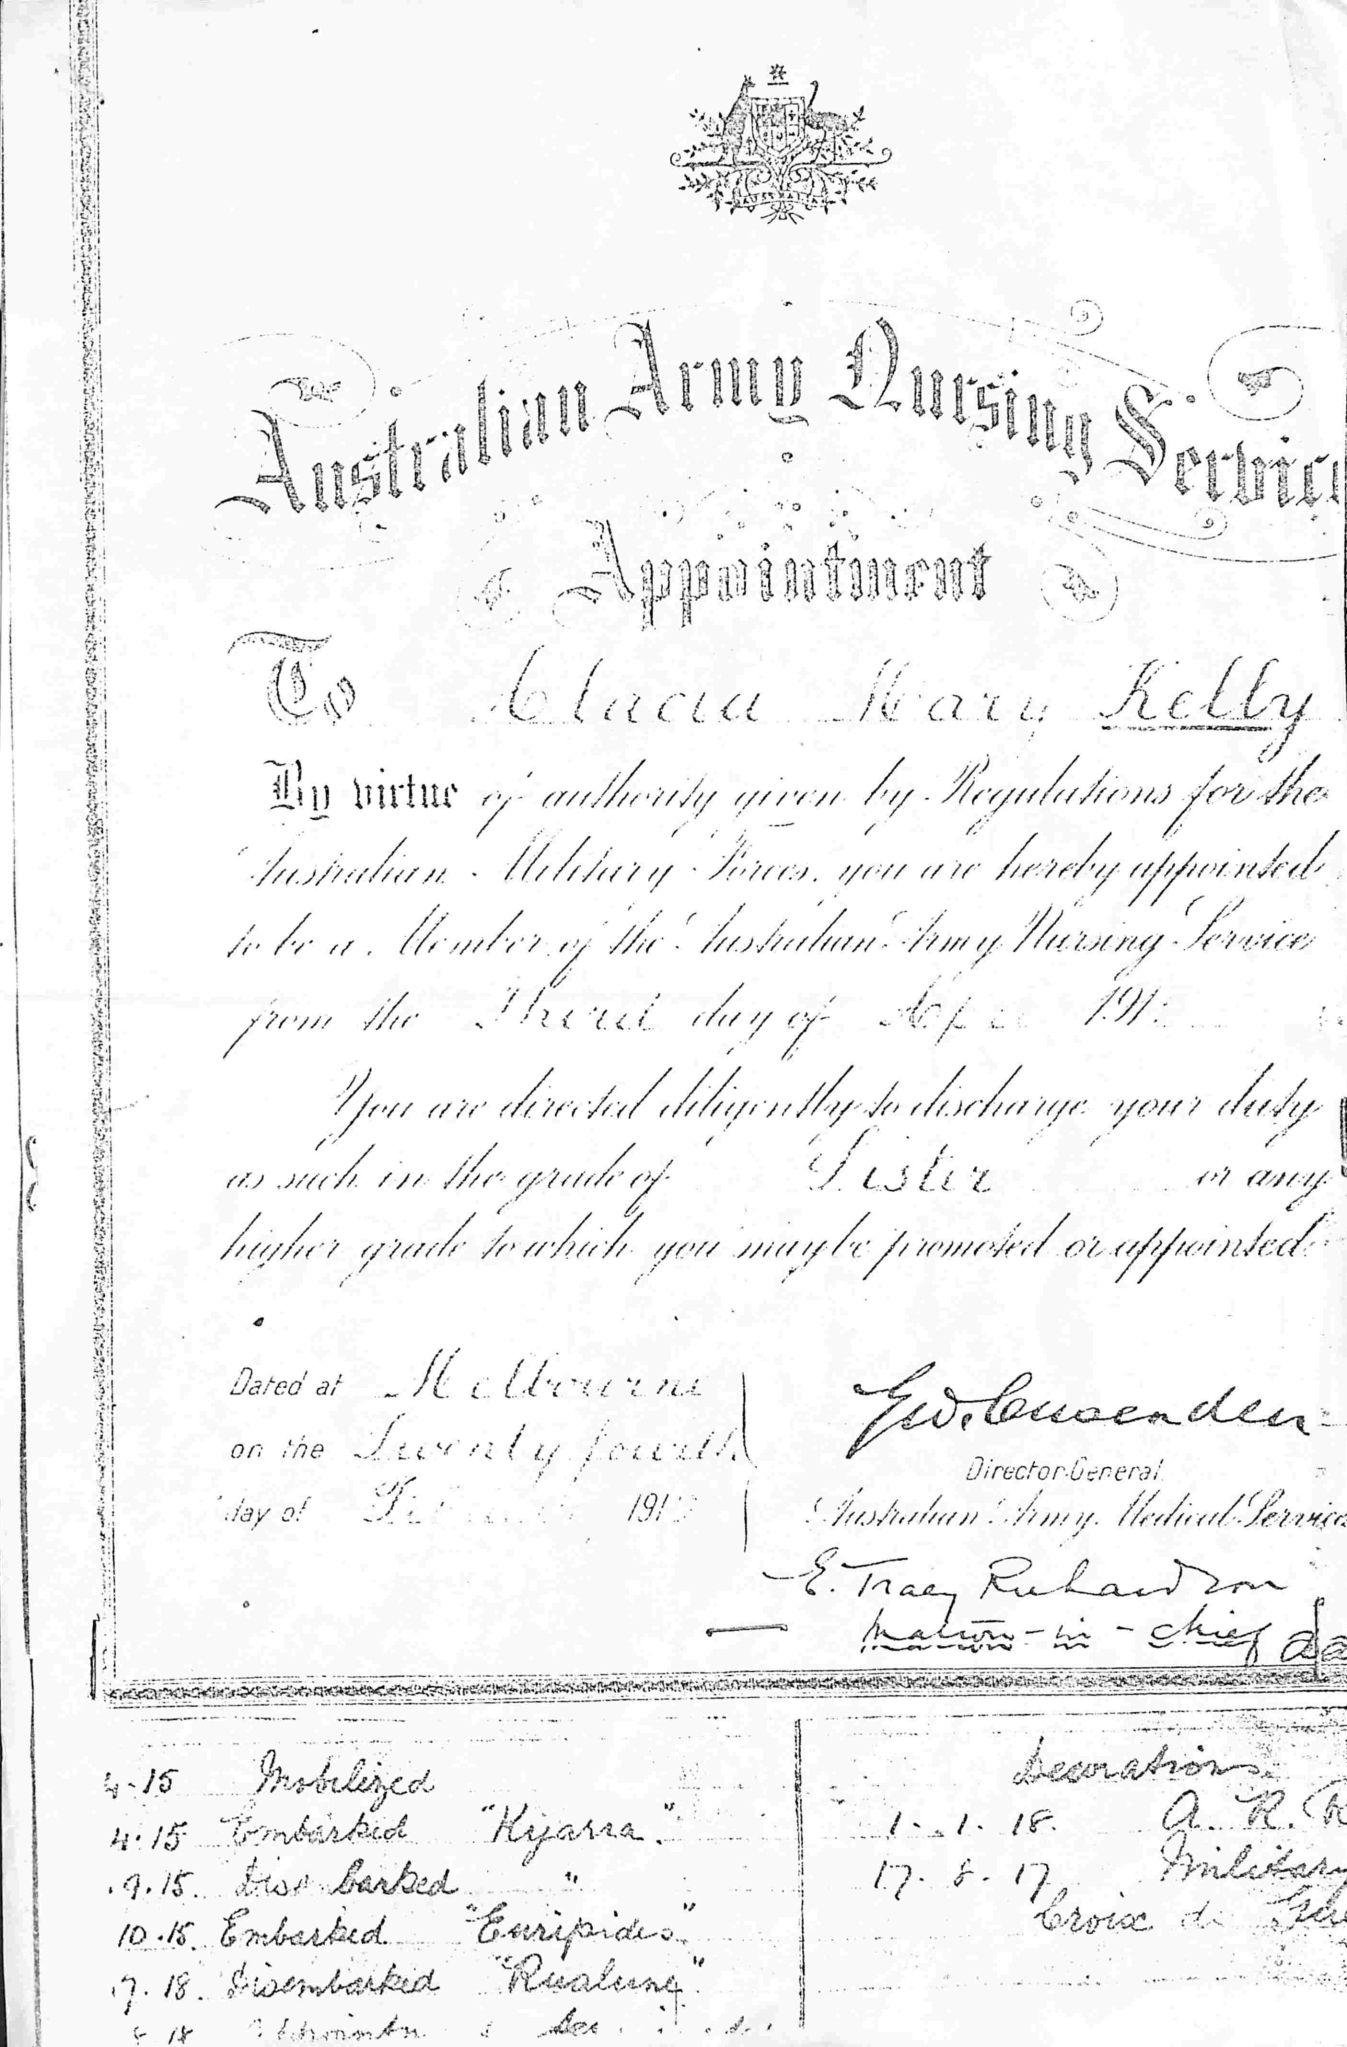 AUSTRALIA
Australian Army Nursing Service
Appointment
To Alacia Mary Kelly
By virtue of authority given by Regulations for the
Australian Military Forces, you are hereby appointed
to be a Member of the Australian Army Nursing Service
from the Third day of 191
You are directed diligently to discharge your duty
as such in the grade of Sister or any
higher grade to which you may be promoted or appointed.
Dated at Melbourne
on the Twenty fourth
day of 191
Director-General
Australian Army Medical Service
E. Tracy Richardson
Matron-in-chief
4.15 Mobilized
4.15 Embarked "Kyarra."
.9.15. Disembarked "
10.15. Embarked "Euripides"
.7.18. Disembarked
8.18
Decorations
1.1.18. A. R. R
17.8.17 Military
Croix de